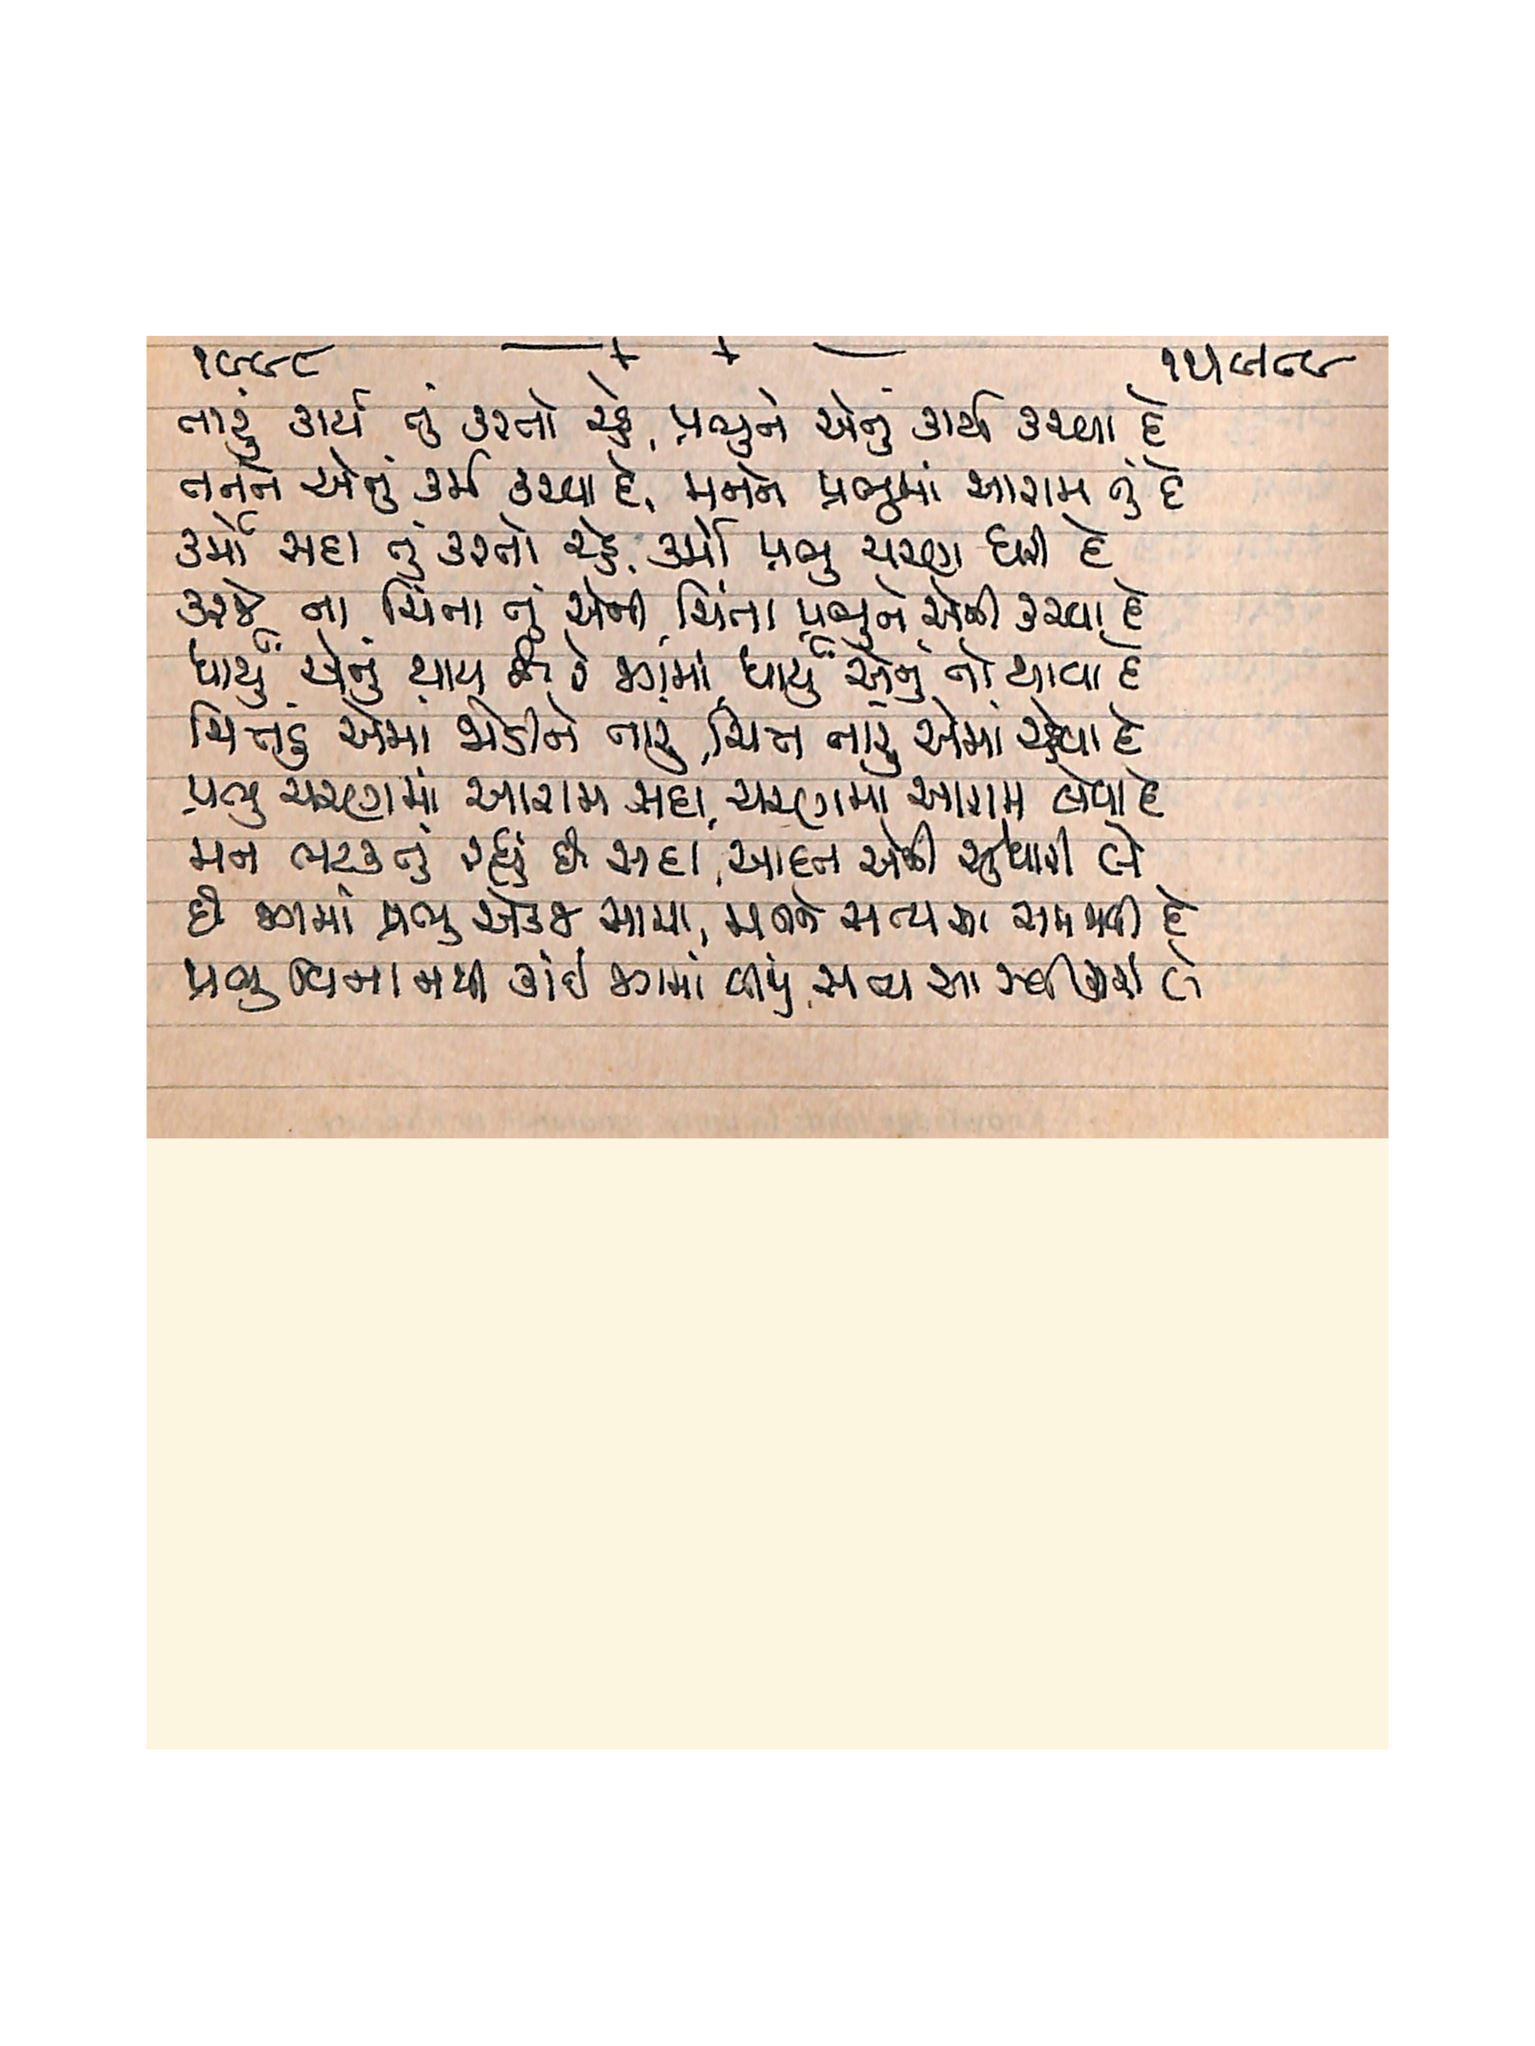 ૧૯૯૮ ૧૫/૯/૮૯
તારું કાર્ય તું કરતો રહે, પ્રભુને એનું કાર્ય કરવા દે
તનને એનું કર્મ કરવા દે, મનને પ્રભુમાં આરામ તું દે
કર્મો સદા તું કરતો રહે, કર્મો પ્રભુ ચરણે ધરી દે
કરજે ના ચિંતા તું એની, ચિંતા પ્રભુને એની કરવા દે
ધાર્યું એનું થાય છે રે જગમાં, ધાર્યું એનું તો થાવા દે
ચિત્તડું એમાં જોડીને તારું, ચિત્ત તારું એમાં રહેવા દે
પ્રભુ ચરણમાં આરામ સદા, ચરણમાં આરામ લેવા દે
મન ભટકતું રહ્યું છે સદા, આદત એની સુધારી લે
છે જગમાં પ્રભુ એકજ સાચા, મનને સત્ય આ સમજાવી દે
પ્રભુ વિના નથી કાંઈ જગમાં બીજું, સત્ય આ સ્વીકારી લે